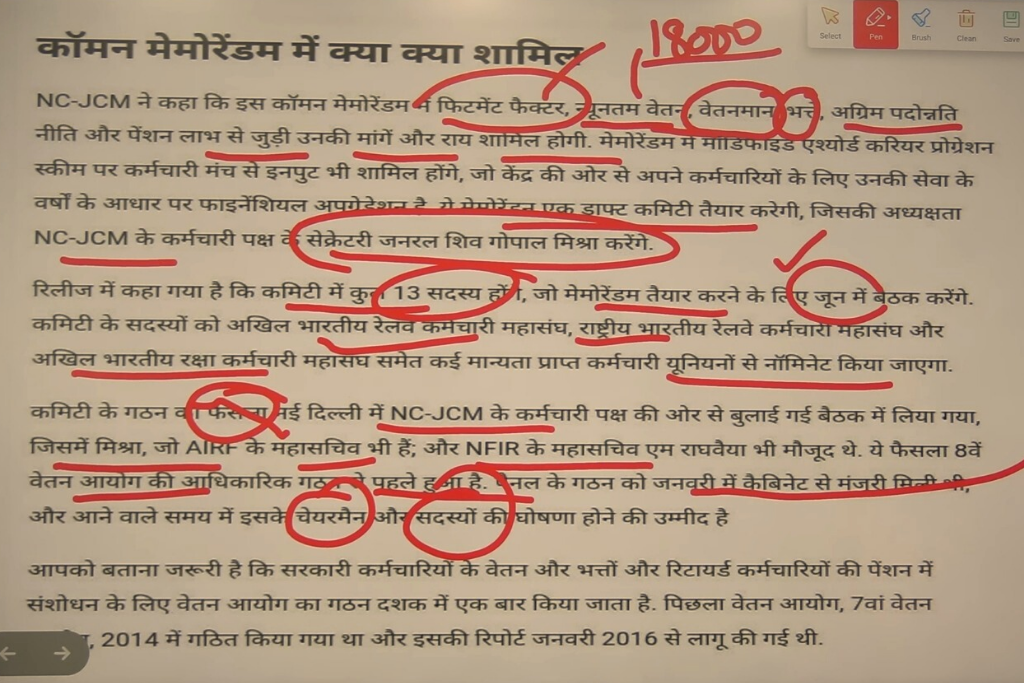 कॉमन मेमोरेंडम में क्या क्या शामिल
18000
Select Pen Brush Clean Save
NC-JCM ने कहा कि इस कॉमन मेमोरेंडम में फिटमेंट फैक्टर, न्यूनतम वेतन, वेतनमान, भत्ते, अग्रिम पदोन्नति
नीति और पेंशन लाभ से जुड़ी उनकी मांगें और राय शामिल होगी. मेमोरेंडम में मॉडिफाइड एश्योर्ड करियर प्रोग्रेशन
स्कीम पर कर्मचारी मंच से इनपुट भी शामिल होंगे, जो केंद्र की ओर से अपने कर्मचारियों के लिए उनकी सेवा के
वर्षों के आधार पर फाइनेंशियल अपग्रेडेशन है. ये मेमोरेंडम एक ड्राफ्ट कमिटी तैयार करेगी, जिसकी अध्यक्षता
NC-JCM के कर्मचारी पक्ष के सेक्रेटरी जनरल शिव गोपाल मिश्रा करेंगे.
रिलीज में कहा गया है कि कमिटी में कुल 13 सदस्य होंगे, जो मेमोरेंडम तैयार करने के लिए जून में बैठक करेंगे.
कमिटी के सदस्यों को अखिल भारतीय रेलवे कर्मचारी महासंघ, राष्ट्रीय भारतीय रेलवे कर्मचारी महासंघ और
अखिल भारतीय रक्षा कर्मचारी महासंघ समेत कई मान्यता प्राप्त कर्मचारी यूनियनों से नॉमिनेट किया जाएगा.
कमिटी के गठन का फैसला नई दिल्ली में NC-JCM के कर्मचारी पक्ष की ओर से बुलाई गई बैठक में लिया गया,
जिसमें मिश्रा, जो AIRF के महासचिव भी हैं; और NFIR के महासचिव एम राघवैया भी मौजूद थे. ये फैसला 8वें
वेतन आयोग की आधिकारिक गठन से पहले हुआ है. पैनल के गठन को जनवरी में कैबिनेट से मंजूरी मिली थी,
और आने वाले समय में इसके चेयरमैन और सदस्यों की घोषणा होने की उम्मीद है
आपको बताना जरूरी है कि सरकारी कर्मचारियों के वेतन और भत्तों और रिटायर्ड कर्मचारियों की पेंशन में
संशोधन के लिए वेतन आयोग का गठन दशक में एक बार किया जाता है. पिछला वेतन आयोग, 7वां वेतन
, 2014 में गठित किया गया था और इसकी रिपोर्ट जनवरी 2016 से लागू की गई थी.